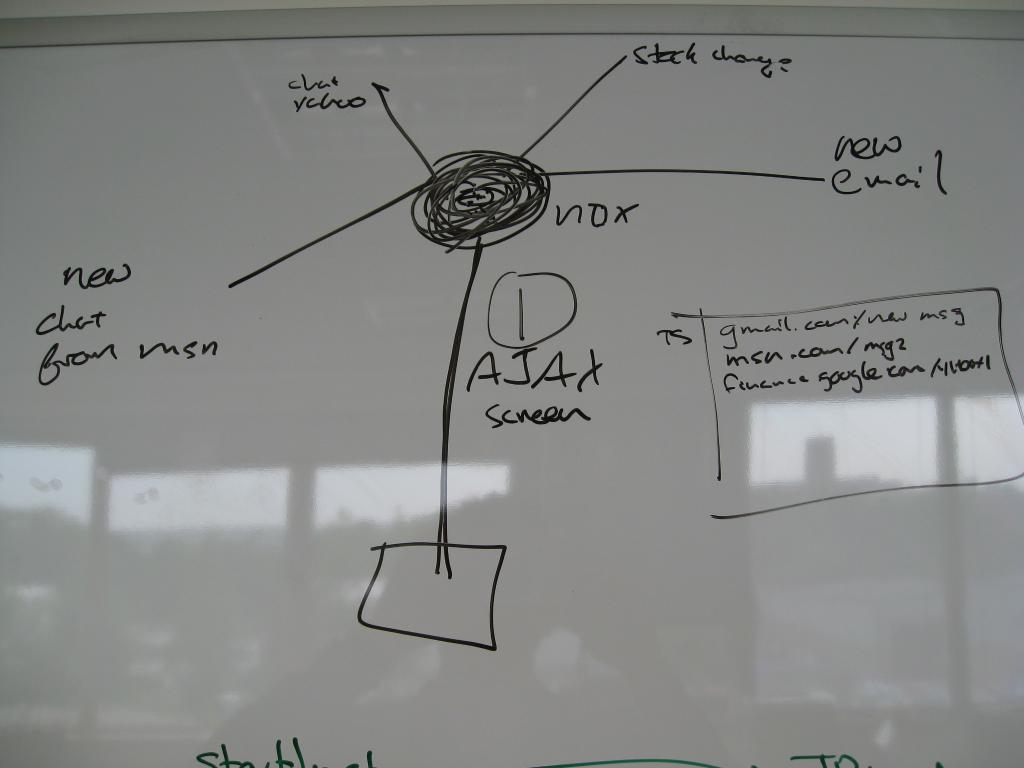 stock change
chat
yahoo
new
email
nox
new
chat
from msn
1
AJAX
screen
TS
gmail.com/new msg
msn.com/msg2
finance google com/